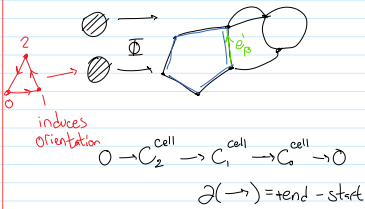 Φ
2
e'β
0 1
induces
orientation
0 → C₂^cell → C₁^cell → C₀^cell → 0
∂(→) = +end − start